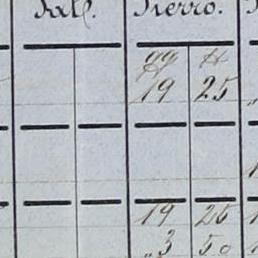 Sale. Fierro.
qq tt
19 25
19 25
"3 50